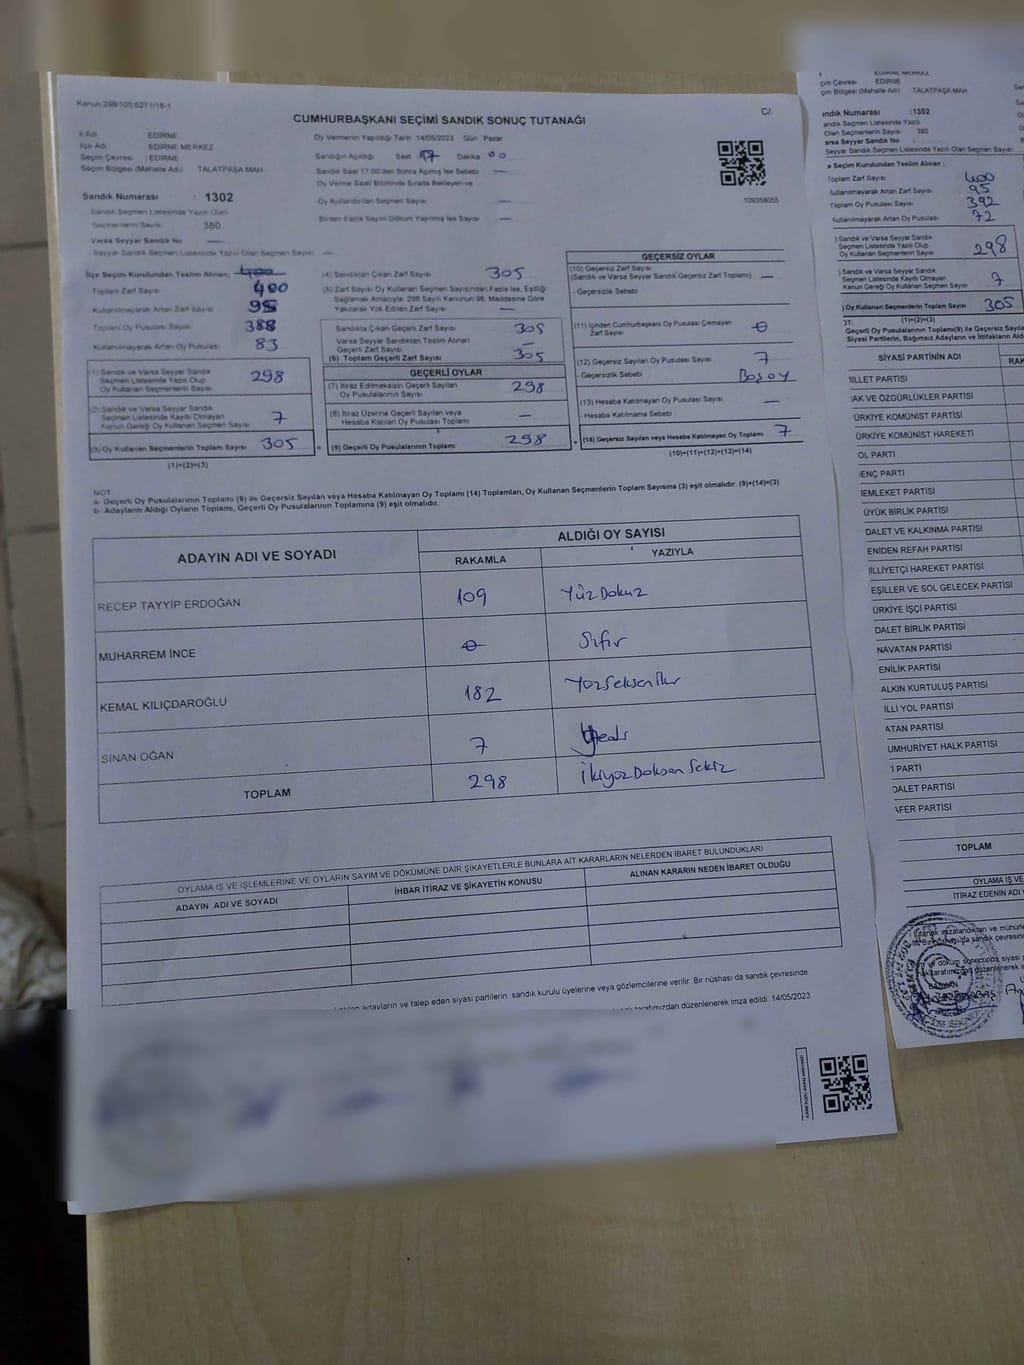 Kanun:298/105;6271/18-1
C/
CUMHURBAŞKANI SEÇİMİ SANDIK SONUÇ TUTANAĞI
İl Adı EDİRNE
İlçe Adı EDİRNE MERKEZ
Seçim Çevresi : EDİRNE
Seçim Bölgesi (Mahalle Adı) TALATPAŞA MAH.
Sandık Numarası : 1302
Sandık Seçmen Listesinde Yazılı Olan
Seçmenlerin Sayısı 380
Varsa Seyyar Sandık No —
Seyyar Sandık Seçmen Listesinde Yazılı Olan Seçmen Sayısı: —
Oy Vermenin Yapıldığı Tarih 14/05/2023 Gün Pazar
Sandığın Açıldığı Saat 17 Dakika 00
Sandık Saat 17.00'den Sonra Açılmış İse Sebebi —
Oy Verme Saati Bitiminde Sırada Bekleyen ve
Oy Kullandırılan Seçmen Sayısı —
Birden Fazla Sayım Döküm Yapılmış İse Sayısı —
109358055
İlçe Seçim Kurulundan Teslim Alınan;
Toplam Zarf Sayısı 400
Kullanılmayarak Artan Zarf Sayısı 95
Toplam Oy Pusulası Sayısı 388
Kullanılmayarak Artan Oy Pusulası 83
(1) Sandık ve Varsa Seyyar Sandık
Seçmen Listesinde Yazılı Olup
Oy Kullanan Seçmenlerin Sayısı 298
(2) Sandık ve Varsa Seyyar Sandık
Seçmen Listesinde Kayıtlı Olmayan
Kanun Gereği Oy Kullanan Seçmen Sayısı 7
(3) Oy Kullanan Seçmenlerin Toplam Sayısı 305
(1)+(2)=(3)
(4) Sandıktan Çıkan Zarf Sayısı 305
(5) Zarf Sayısı Oy Kullanan Seçmen Sayısından Fazla İse, Eşitliği
Sağlamak Amacıyla, 298 Sayılı Kanunun 98. Maddesine Göre
Yakılarak Yok Edilen Zarf Sayısı —
Sandıkta Çıkan Geçerli Zarf Sayısı 305
Varsa Seyyar Sandıktan Teslim Alınan
Geçerli Zarf Sayısı —
(6) Toplam Geçerli Zarf Sayısı 305
GEÇERLİ OYLAR
(7) İtiraz Edilmeksizin Geçerli Sayılan
Oy Pusulası Sayısı 298
(8) İtiraz Üzerine Geçerli Sayılan veya
Hesaba Katılan Oy Pusulası Toplamı —
(9) Geçerli Oy Pusulalarının Toplamı 298
GEÇERSİZ OYLAR
(10) Geçersiz Zarf Sayısı
(Sandık ve Varsa Seyyar Sandık Geçersiz Zarf Toplamı) —
- Geçersizlik Sebebi
(11) İçinden Cumhurbaşkanı Oy Pusulası Çıkmayan
Zarf Sayısı 0
(12) Geçersiz Sayılan Oy Pusulası Sayısı 7
- Geçersizlik Sebebi Boş oy
(13) Hesaba Katılmayan Oy Pusulası Sayısı —
- Hesaba Katılmama Sebebi
(14) Geçersiz Sayılan veya Hesaba Katılmayan Oy Toplamı 7
(10)+(11)+(12)+(13)=(14)
NOT
a- Geçerli Oy Pusulalarının Toplamı (9) ile Geçersiz Sayılan veya Hesaba Katılmayan Oy Toplamı (14) Toplamları, Oy Kullanan Seçmenlerin Toplam Sayısına (3) eşit olmalıdır. (9)+(14)=(3)
b- Adayların Aldığı Oyların Toplamı, Geçerli Oy Pusulalarının Toplamına (9) eşit olmalıdır.
ADAYIN ADI VE SOYADI ALDIĞI OY SAYISI
RAKAMLA YAZIYLA
RECEP TAYYİP ERDOĞAN 109 Yüz Dokuz
MUHARREM İNCE 0 Sıfır
KEMAL KILIÇDAROĞLU 182 Yüzseksen İki
SİNAN OĞAN 7 Yedi
TOPLAM 298 İkiyüz Doksan Sekiz
OYLAMA İŞ VE İŞLEMLERİNE VE OYLARIN SAYIM VE DÖKÜMÜNE DAİR ŞİKAYETLERLE BUNLARA AİT KARARLARIN NELERDEN İBARET BULUNDUKLARI
ADAYIN ADI VE SOYADI İHBAR İTİRAZ VE ŞİKAYETİN KONUSU ALINAN KARARIN NEDEN İBARET OLDUĞU
adayların ve talep eden siyasi partilerin sandık kurulu üyelerine veya gözlemcilerine verilir. Bir nüshası da sandık çevresinde
tarafımızdan düzenlenerek imza edildi. 14/05/2023
EDİRNE MERKEZ
çim Çevresi EDİRNE
çim Bölgesi (Mahalle Adı) TALATPAŞA MAH.
ındık Numarası :1302
andık Seçmen Listesinde Yazılı
Olan Seçmenlerin Sayısı 380
arsa Seyyar Sandık No
Seyyar Sandık Seçmen Listesinde Yazılı Olan Seçmen Sayısı
e Seçim Kurulundan Teslim Alınan ;
Toplam Zarf Sayısı 400
ullanılmayarak Artan Zarf Sayısı 95
Toplam Oy Pusulası Sayısı 392
ullanılmayarak Artan Oy Pusulası 72
) Sandık ve Varsa Seyyar Sandık
Seçmen Listesinde Yazılı Olup
Oy Kullanan Seçmenlerin Sayısı 298
) Sandık ve Varsa Seyyar Sandık
Seçmen Listesinde Kayıtlı Olmayan
Kanun Gereği Oy Kullanan Seçmen Sayısı 7
) Oy Kullanan Seçmenlerin Toplam Sayısı 305
(1)+(2)=(3)
OT:
Geçerli Oy Pusulalarının Toplamı(9) ile Geçersiz Sayıla
Siyasi Partilerin, Bağımsız Adayların ve İttifakların Ald
SİYASİ PARTİNİN ADI RAK
İLLET PARTİSİ
AK VE ÖZGÜRLÜKLER PARTİSİ
ÜRKİYE KOMÜNİST PARTİSİ
ÜRKİYE KOMÜNİST HAREKETİ
OL PARTİ
ENÇ PARTİ
IEMLEKET PARTİSİ
ÜYÜK BİRLİK PARTİSİ
DALET VE KALKINMA PARTİSİ
ENİDEN REFAH PARTİSİ
İLLİYETÇİ HAREKET PARTİSİ
EŞİLLER VE SOL GELECEK PARTİSİ
ÜRKİYE İŞÇİ PARTİSİ
DALET BİRLİK PARTİSİ
NAVATAN PARTİSİ
ENİLİK PARTİSİ
ALKIN KURTULUŞ PARTİSİ
İLLİ YOL PARTİSİ
ATAN PARTİSİ
UMHURİYET HALK PARTİSİ
İ PARTİ
DALET PARTİSİ
AFER PARTİSİ
TOPLAM
OYLAMA İŞ VE
İTİRAZ EDENİN ADI